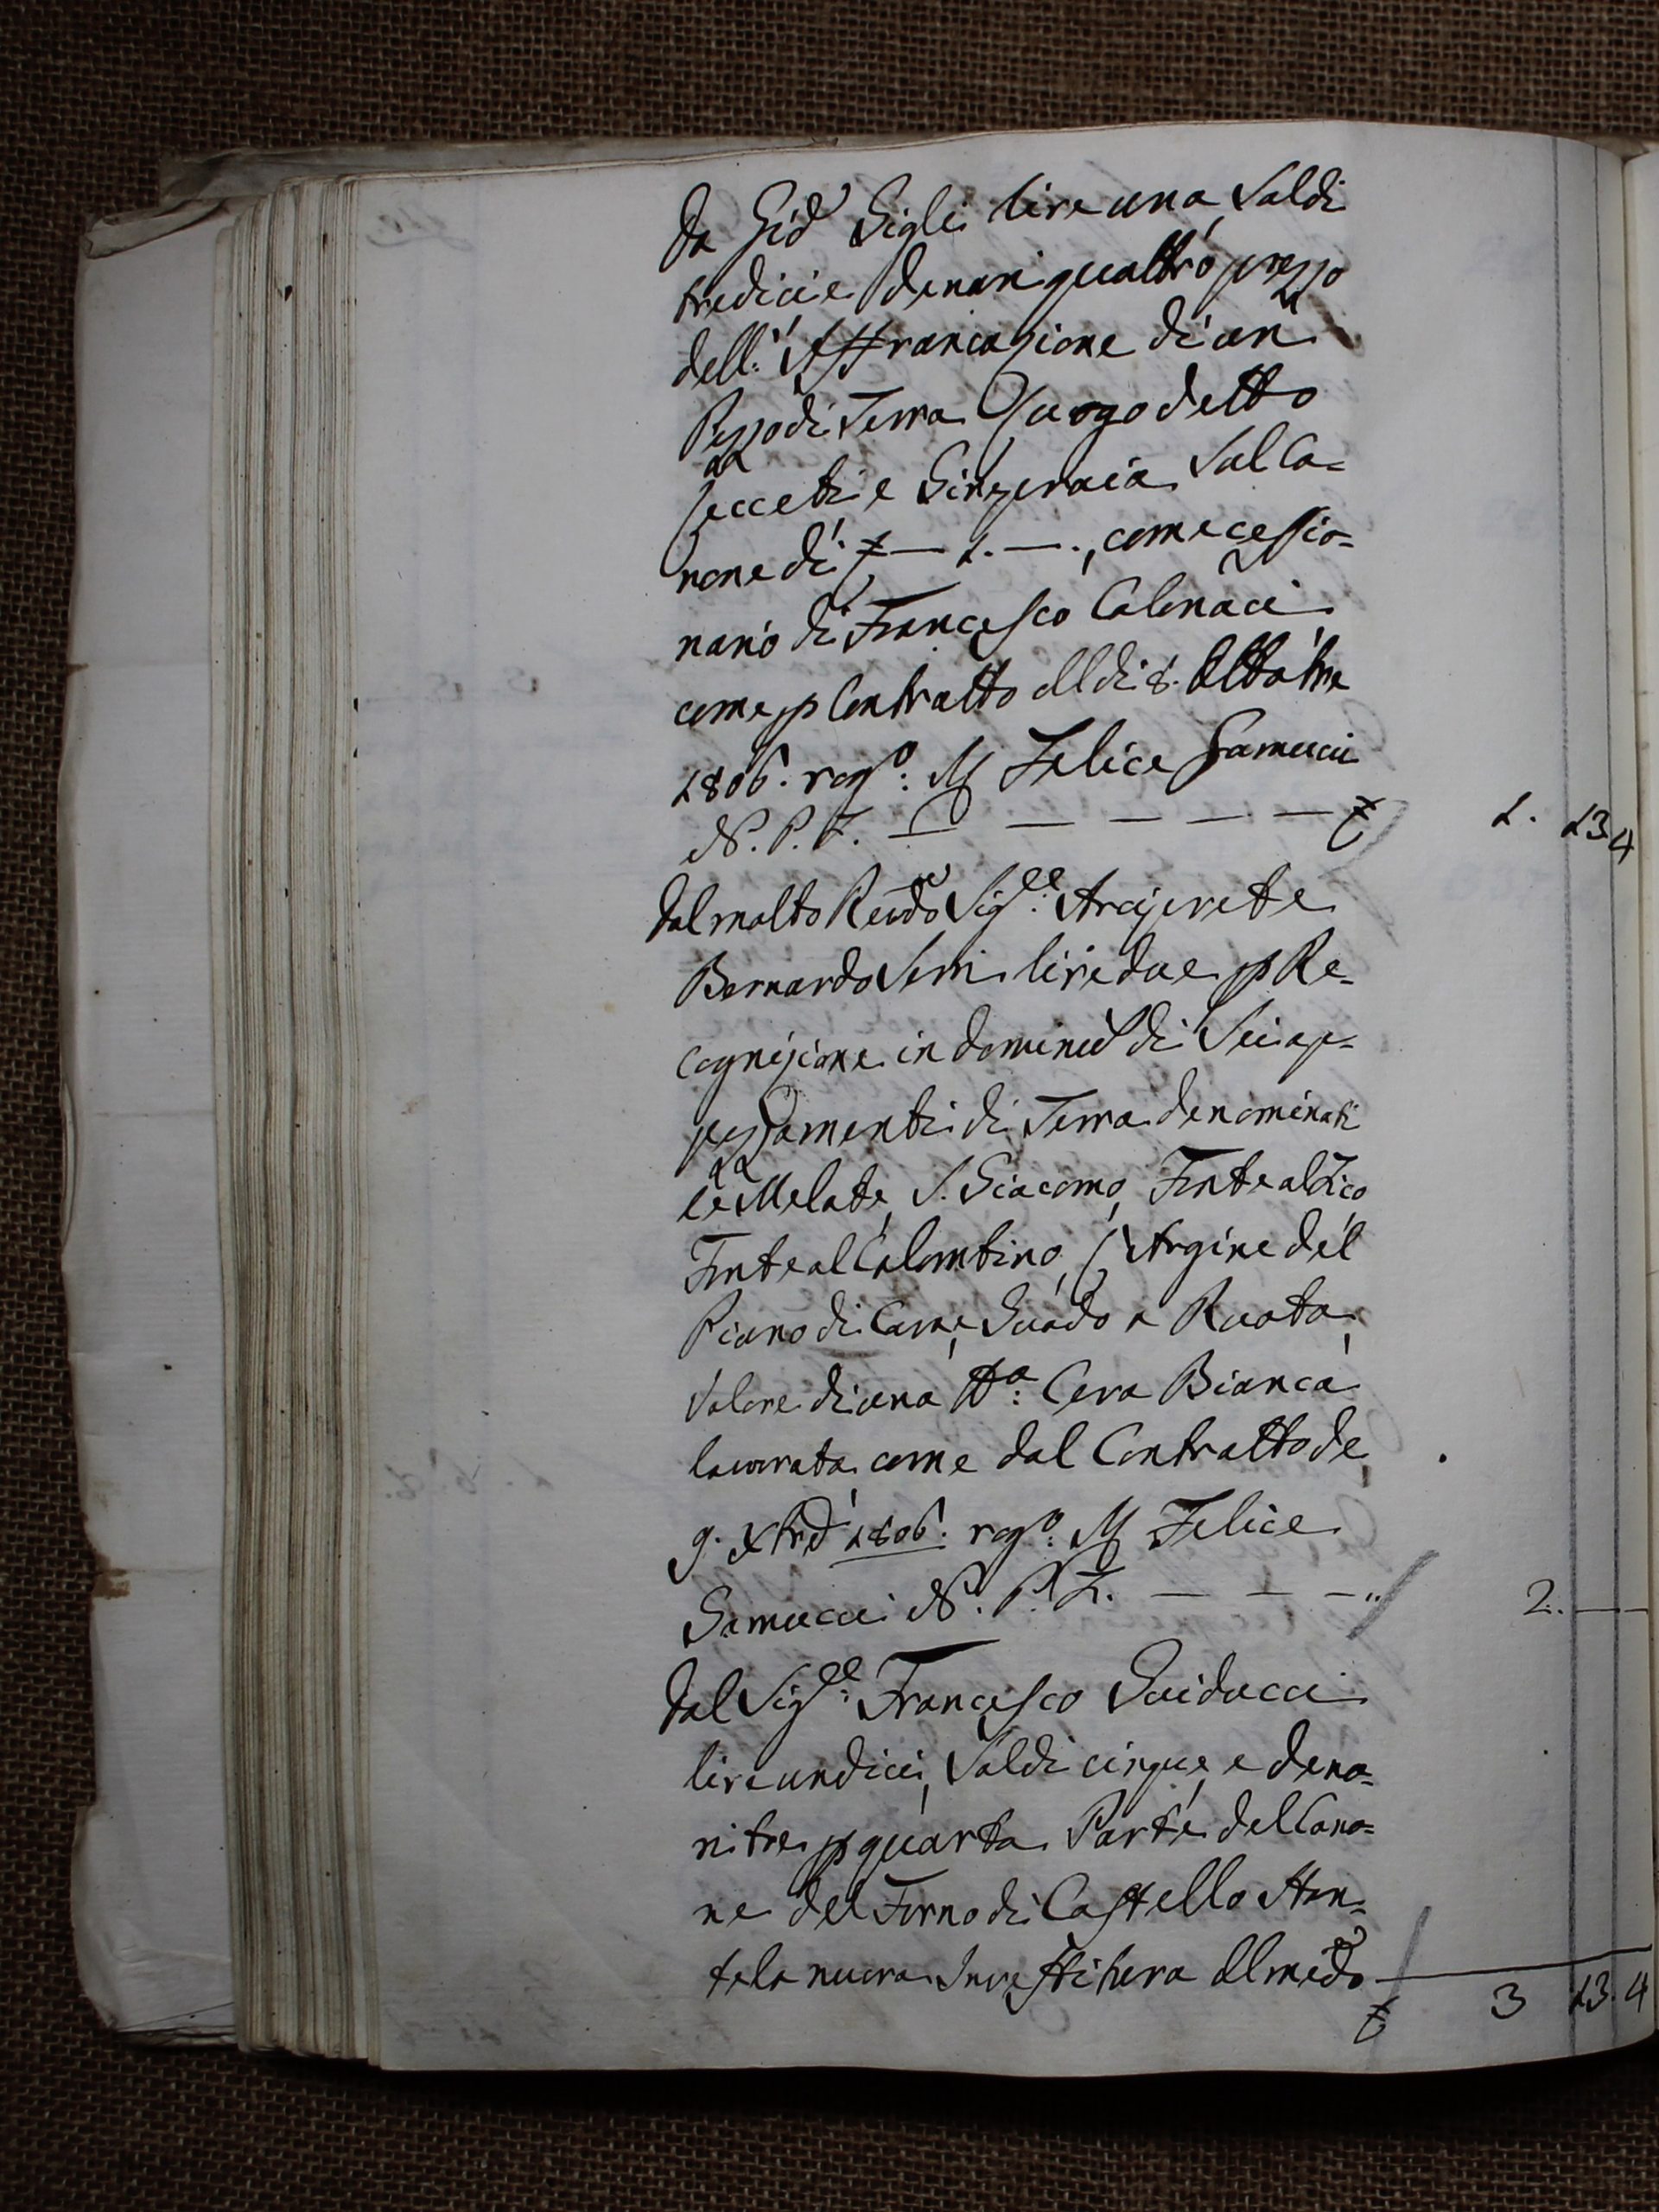 Da Gio Gigli lire una, Soldi
tredici e denari quattro prezzo
dell'Affrancazione di un
Pezzo di Terra Luogo detto
Cecceti e Gineparaia Sul Ca=
none di £ — 1. —., come cessio=
nario di Francesco Colonaci
come p Contratto dll di 8. Ottobre
1806. rog.º: M Felice Samucci
N. P. F. — — — — — £ 1. 13 4
Dal molto Revdo Sig.re: Arciprete
Bernardo Serri lire due p Re=
cognizione in dominud di Sei ap=
pezzamenti di Terra denominati
le Melate, S. Giacomo, Fonte al Fico
Fonte al Colombino, L'Argine del
Piano di Carne, Guado a Ruota,
Valore di una tta: Cera Bianca
lavorata, come dal Contratto de
9. Xbre 1806. rog.º: M Felice
Samucci N. P. F. — — —.. 2. — —
Dal Sig.re: Francesco Guiducci
lire undici, Soldi cinque, e dena=
ri tre p quarta Parte del Cano=
ne del Forno di Castello Atan=
te la nuova Investitura Al medo
£ 3 13. 4